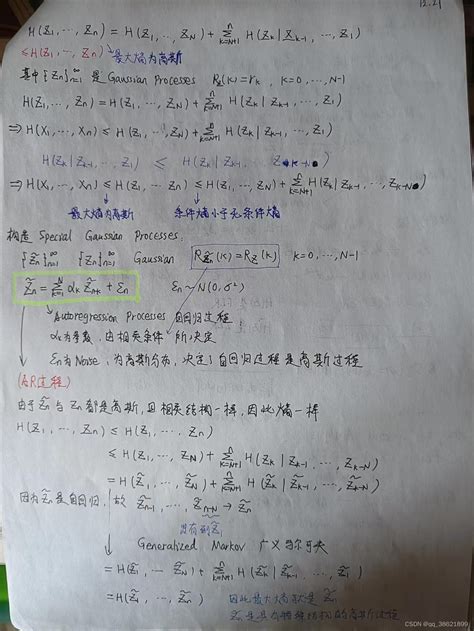 12.21
H(Z₁, ⋯, Zₙ) = H(Z₁, ⋯, Z_N) + Σ_{k=N+1}^n H(Z_k | Z_{k-1}, ⋯, Z₁)
≤ H(Z₁, ⋯, Zₙ) 最大熵为高斯
其中{Zₙ}_{n=1}^∞ 是Gaussian Processes R_Z(k)=r_k, k=0, ⋯, N-1
H(Z₁, ⋯, Zₙ) = H(Z₁, ⋯, Z_N) + Σ_{k=N+1}^n H(Z_k | Z_{k-1}, ⋯, Z₁)
⇒ H(X₁, ⋯, Xₙ) ≤ H(Z₁, ⋯, Z_N) + Σ_{k=N+1}^n H(Z_k | Z_{k-1}, ⋯, Z₁)
H(Z_k | Z_{k-1}, ⋯, Z₁) ≤ H(Z_k | Z_{k-1}, ⋯, Z_{k-N})
⇒ H(X₁, ⋯, Xₙ) ≤ H(Z₁, ⋯, Zₙ) ≤ H(Z₁, ⋯, Z_N) + Σ_{k=N+1}^n H(Z_k | Z_{k-1}, ⋯, Z_{k-N})
最大熵为高斯 条件熵小于无条件熵
构造 Special Gaussian Processes:
{Z̃ₙ}_{n=1}^∞ {Zₙ}_{n=1}^∞ Gaussian R_Z̃(k)=R_Z(k) k=0, ⋯, N-1
Z̃ₙ = Σ_{k=1}^N α_k Z̃_{n-k} + εₙ εₙ ~ N(0, σ²)
Autoregression Processes 自回归过程
α_k为参数, 由相关条件所决定
εₙ为Noise, 为高斯分布, 决定了自回归过程是高斯过程
(AR过程)
由于Z̃ₙ与Zₙ都是高斯, 且相关结构一样, 因此熵一样
H(Z₁, ⋯, Zₙ) ≤ H(Z₁, ⋯, Zₙ)
≤ H(Z₁, ⋯, Z_N) + Σ_{k=N+1}^n H(Z_k | Z_{k-1}, ⋯, Z_{k-N})
= H(Z̃₁, ⋯, Z̃_N) + Σ_{k=N+1}^n H(Z̃_k | Z̃_{k-1}, ⋯, Z̃_{k-N})
因为Z̃ₙ是自回归, 故 Z̃_{n-1}, ⋯, Z̃_{n-N} → Z̃ₙ
Generalized Markov 广义马尔可夫
= H(Z̃₁, ⋯ Z̃_N) + Σ_{k=N+1}^n H(Z̃_k | Z̃_{k-1}, ⋯, Z̃₁)
= H(Z̃₁, ⋯, Z̃ₙ) 因此最大熵就是 Z̃ₙ
CSDN @qq_38621899